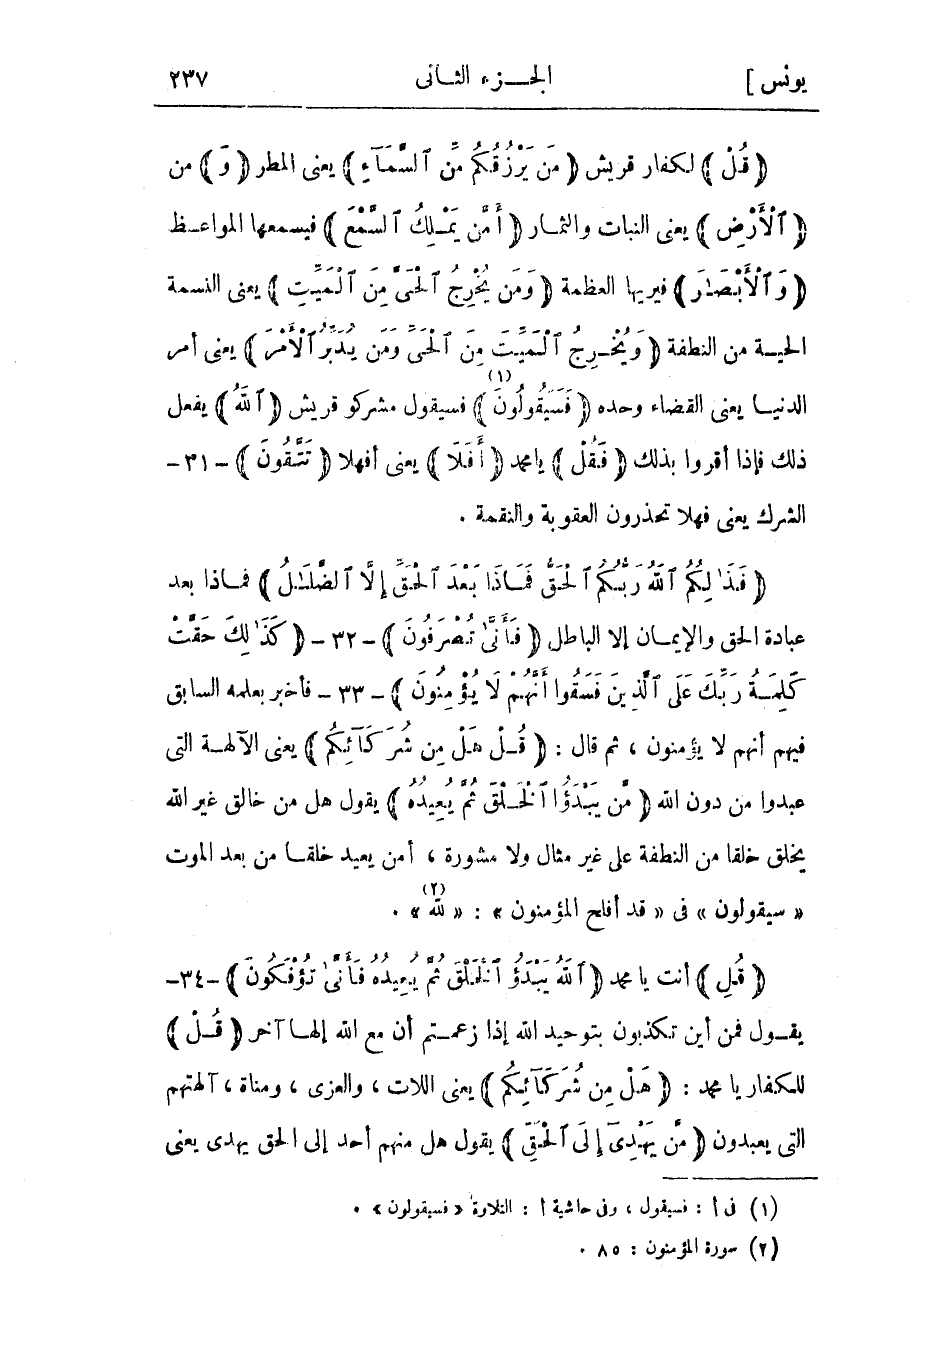 يونس ] الجـــزء الثـانى ٢٣٧
﴿ قُلْ ﴾ لكفار قريش ﴿ مَن يَرْزُقُكُم مِّنَ ٱلسَّمَآءِ ﴾ يعنى المطر ﴿ وَ ﴾ من
﴿ ٱلْأَرْضِ ﴾ يعنى النبات والثمـار ﴿ أَمَّن يَمْـلِكُ ٱلسَّمْعَ ﴾ فيسمعها المواعـظ
﴿ وَٱلْأَبْصَـٰرَ ﴾ فيريها العظمة ﴿ وَمَن يُخْرِجُ ٱلْحَىَّ مِنَ ٱلْمَيِّتِ ﴾ يعنى النسمة
الحيـة من النطفة ﴿ وَيُخْـرِجُ ٱلْمَيِّتَ مِنَ ٱلْحَىِّ وَمَن يُدَبِّرُ ٱلْأَمْرَ ﴾ يعنى أمر
الدنيـا يعنى القضاء وحده ﴿ فَسَيَقُولُونَ ﴾ (١) فسيقول مشركو قريش ﴿ ٱللَّهُ ﴾ يفعل
ذلك فإذا أقروا بذلك ﴿ فَقُلْ ﴾ يا محمد ﴿ أَفَلَا ﴾ يعنى أفهلا ﴿ تَتَّقُونَ ﴾ - ٣١ -
الشرك يعنى فهلا تحذرون العقوبة والنقمة .
﴿ فَذَٰلِكُمُ ٱللَّهُ رَبُّكُمُ ٱلْحَقُّ فَمَاذَا بَعْدَ ٱلْحَقِّ إِلَّا ٱلضَّلَـٰلُ ﴾ فمـاذا بعد
عبادة الحق والإيمـان إلا الباطل ﴿ فَأَنَّىٰ تُصْرَفُونَ ﴾ - ٣٢ - ﴿ كَذَٰلِكَ حَقَّتْ
كَلِمَـةُ رَبِّكَ عَلَى ٱلَّذِينَ فَسَقُوا أَنَّهُمْ لَا يُؤْمِنُونَ ﴾ - ٣٣ - فأخبر بعلمه السابق
فيهم أنهم لا يؤمنون ، ثم قال : ﴿ قُـلْ هَلْ مِن شُرَكَآئِكُم ﴾ يعنى الآلهـة التى
عبدوا من دون الله ﴿ مَّن يَبْدَؤُا ٱلْخَـلْقَ ثُمَّ يُعِيدُهُ ﴾ يقول هل من خالق غير الله
يخلق خلقا من النطفة على غير مثال ولا مشورة ، أمن يعيد خلقـا من بعد الموت
« سيقولون » فى « قد أفلح المؤمنون » : « لله » (٢) .
﴿ قُلِ ﴾ أنت يا محمد ﴿ ٱللَّهُ يَبْدَؤُ ٱلْخَلْقَ ثُمَّ يُعِيدُهُ فَأَنَّىٰ تُؤْفَكُونَ ﴾ - ٣٤ -
يقـول فمن أين تكذبون بتوحيد الله إذا زعمـتم أن مع الله إلهـا آخر ﴿ قُـلْ ﴾
للكفار يا محمد : ﴿ هَلْ مِن شُرَكَآئِكُم ﴾ يعنى اللات ، والعزى ، ومناة ، آلهتهم
التى يعبدون ﴿ مَّن يَهْدِىٓ إِلَى ٱلْحَقِّ ﴾ يقول هل منهم أحد إلى الحق يهدى يعنى
(١) فى أ : فسيقول ، وفى حاشية أ : التلاوة « فسيقولون » .
(٢) سورة المؤمنون : ٨٥ .